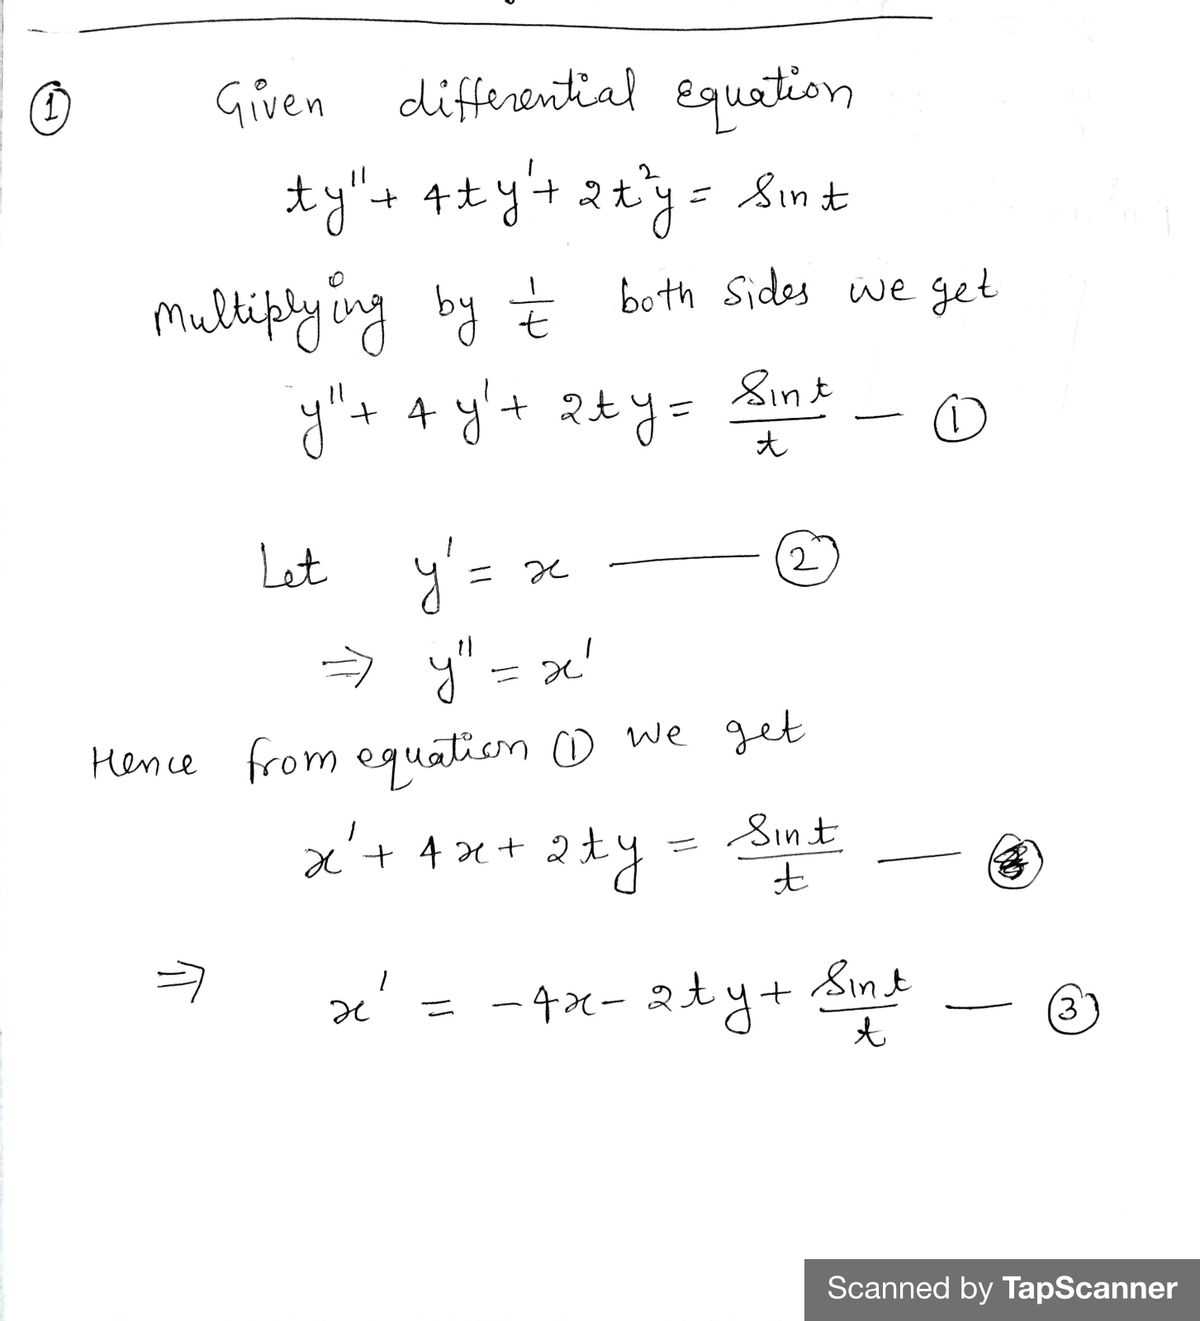 ① Given differential equation
ty'' + 4ty' + 2t²y = Sin t
Multiplying by 1/t both sides we get
y'' + 4y' + 2ty = Sin t/t — ①
Let y' = x — ②
⇒ y'' = x'
Hence from equation ① we get
x' + 4x + 2ty = Sin t/t —
⇒ x' = -4x - 2ty + Sin t/t — ③
Scanned by TapScanner